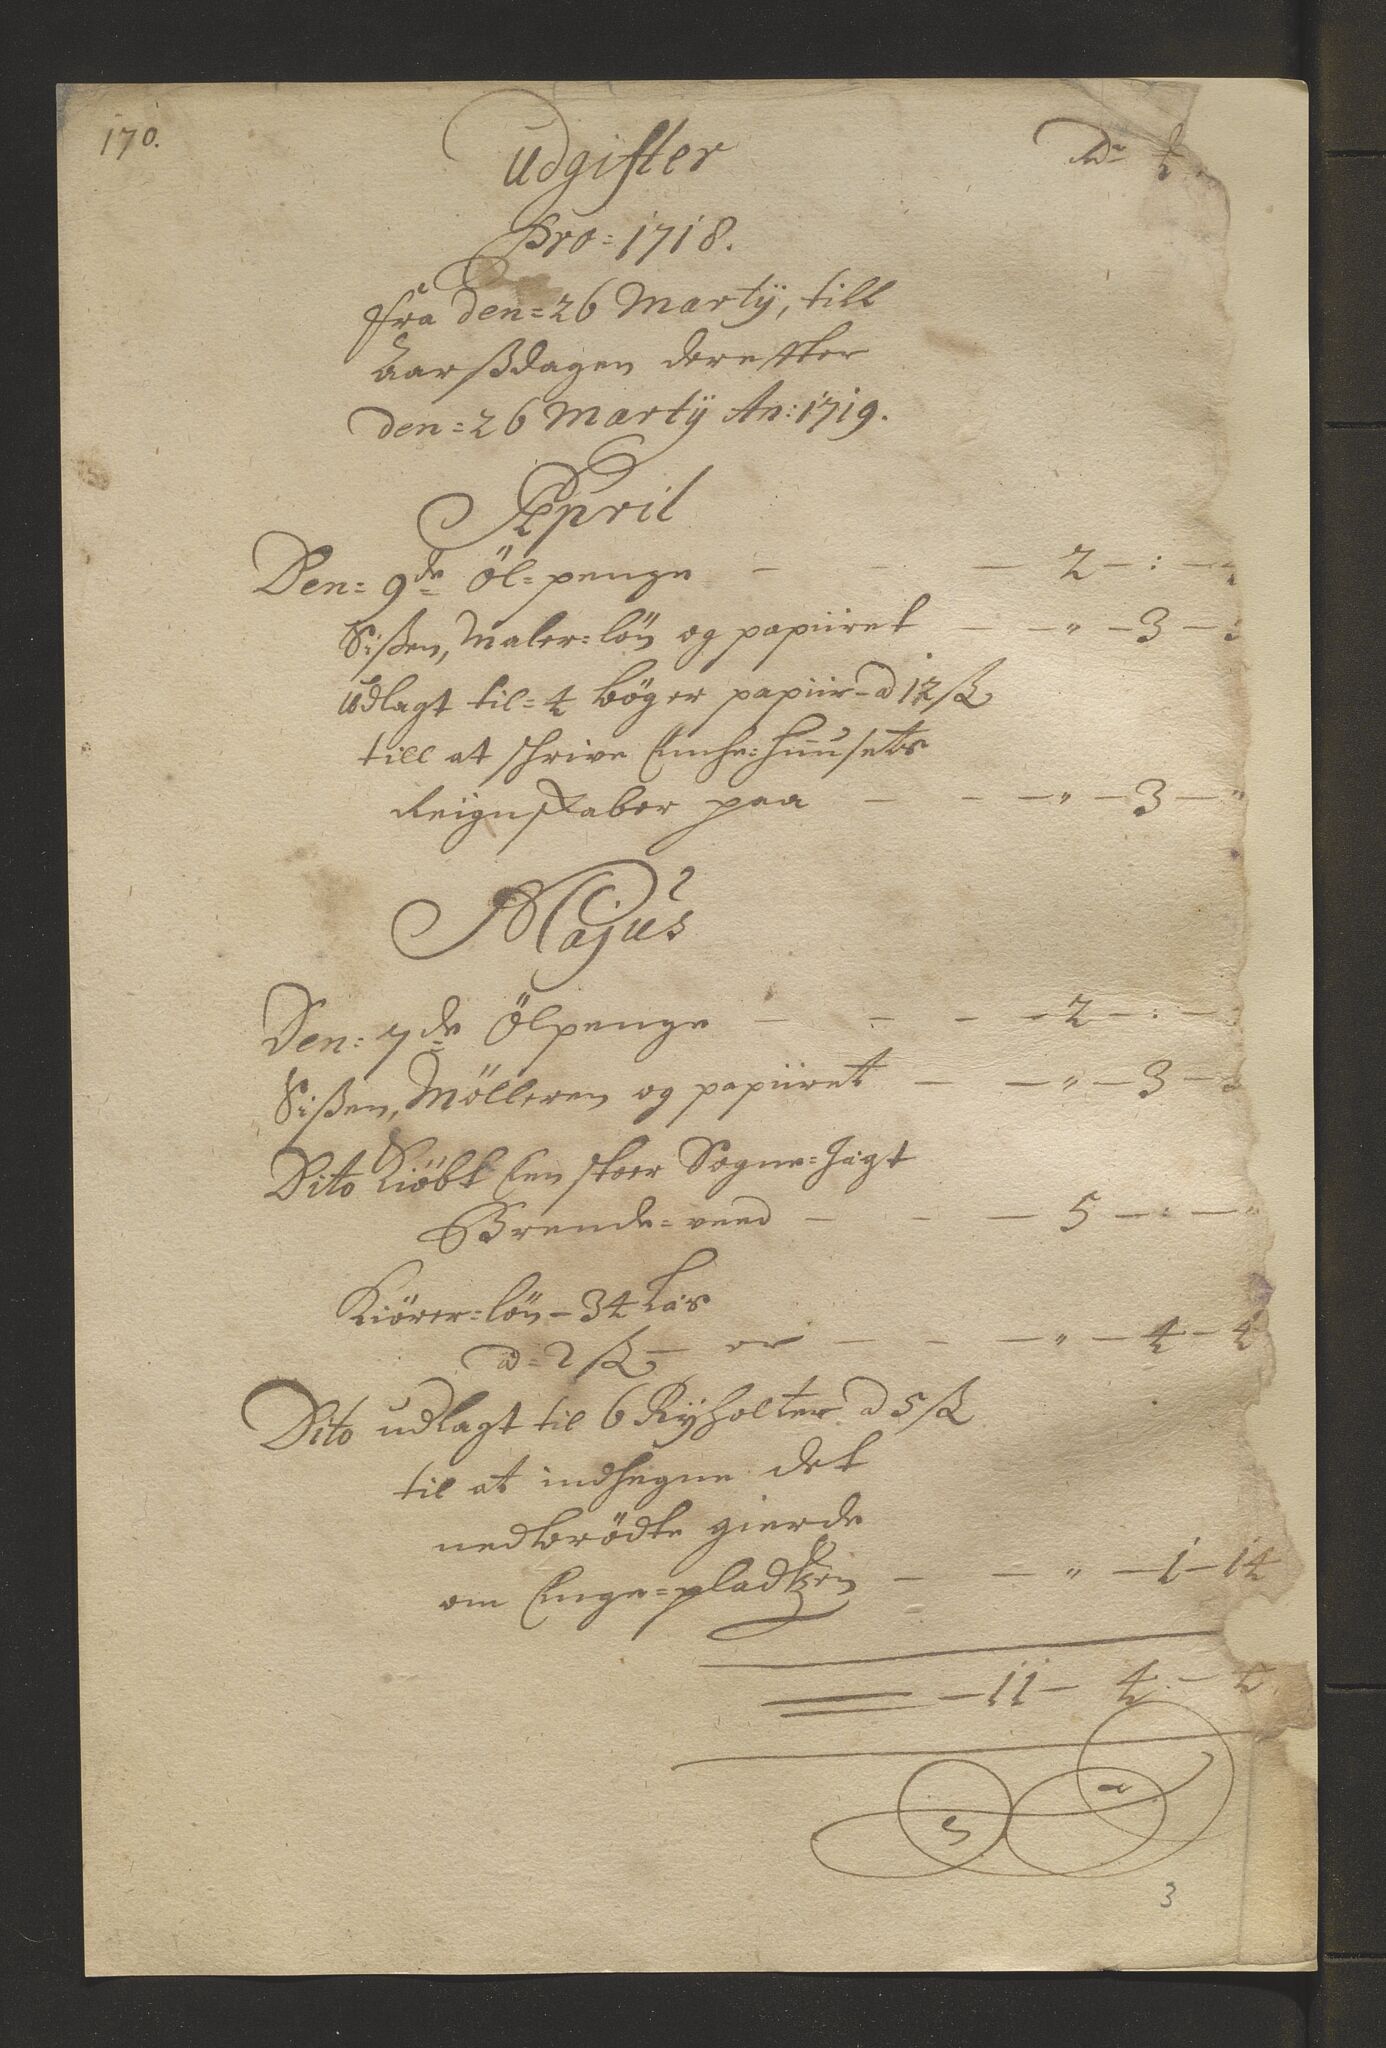 170.
Udgifter
Pro = 1718.
Fra Den = 26 Martÿ, till
Aarßdagen derefter
Den = 26 Martÿ An: 1719.
April
Den = 9de Öl = penge — — — 2 — : —
Sißen, Maler = lön og papiiret — — " — 3 —
Udlagt til = 4 bøger papiir – a 12 ß
till at schrive Enche = Huusets
Reignskaber paa — — — " — 3 — "
Majus
Den = 7de Ölpenge — — — — 2 — : —
Sißen, Mölleren og papiiret — — " — 3 —
Dito Kiöbt Een stoer Sogne = Jagt
Brende = veed — — — 5 — : — "
Kiörer = lön – 34 Läs
a = 2 ß — er — — — " — 4 — 4
Dito udlagt til 6 Rÿholter a 5 ß
til at indhegne det
nedbrödte gierde
om Enge = pladtzen — — " — 1 — 14
— 11 — 4 — 2
3